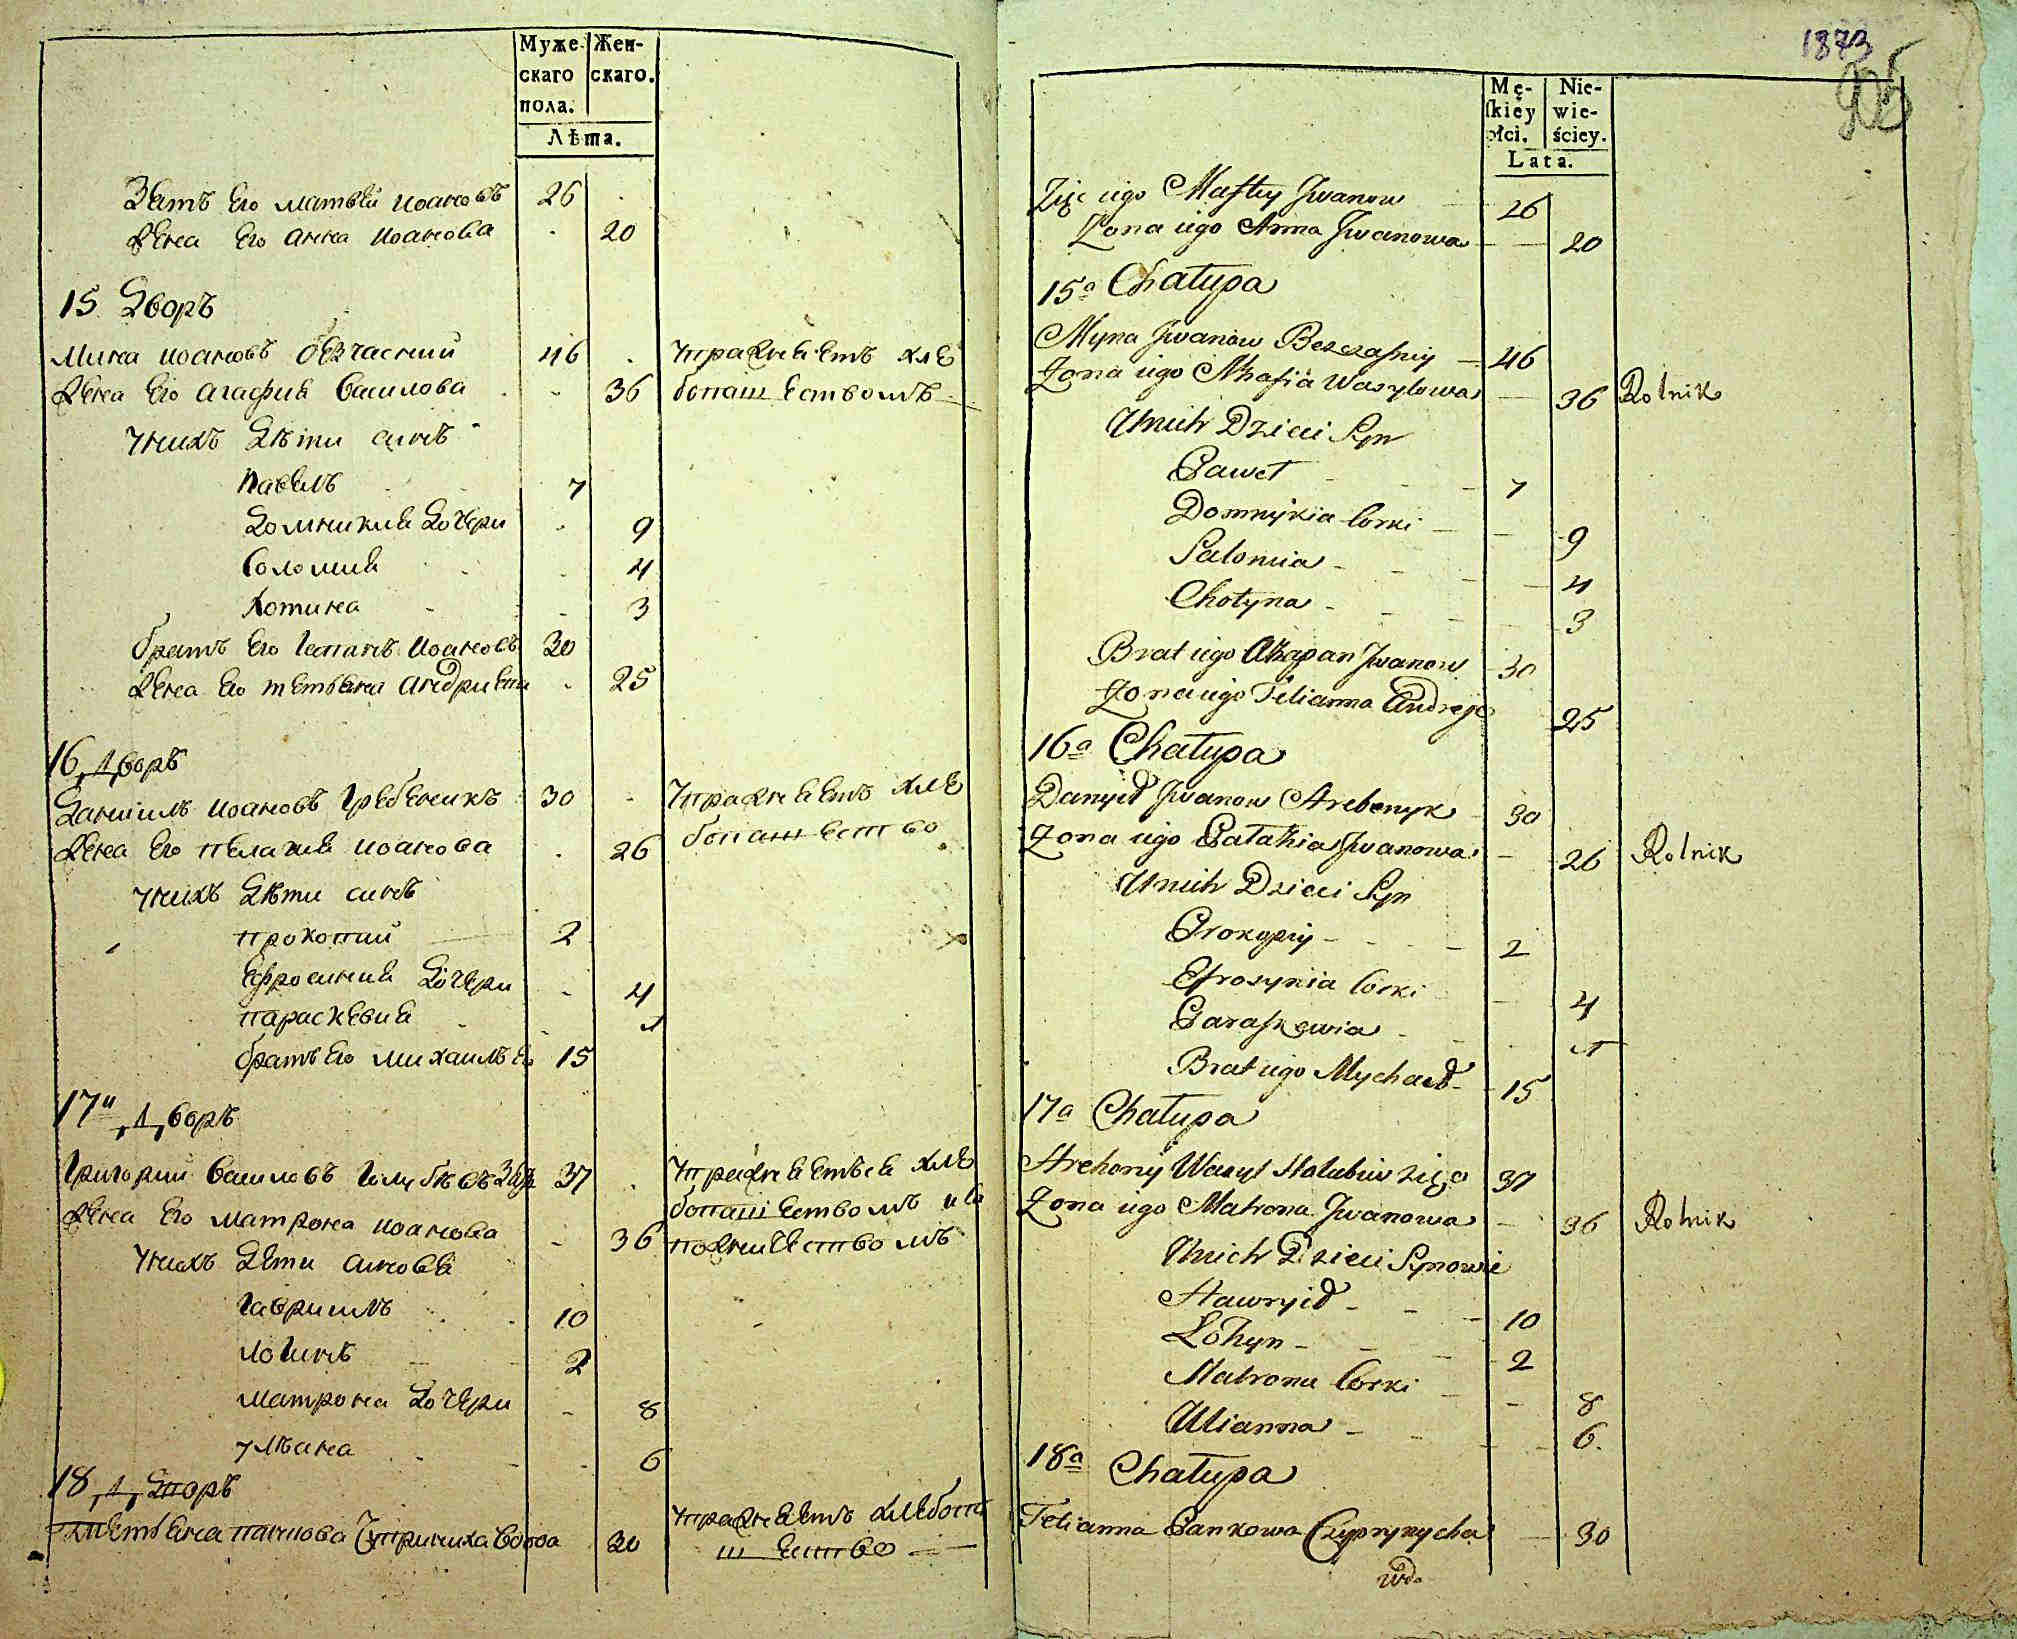 Муже-
скаго
пола.
Жен-
скаго.
Лѣта.
Зять Его матвѣй иоановъ 26
Жена Его анна иоанова 20
15 Дворъ
Мина иоановъ безчасний 46 упражняетъ хле
Жена Его агафия василова 36 бопашествомъ
Униxъ Дѣти синъ
Павелъ 7
Домникия Дочери 9
Соломия 4
Хотина 3
братъ Его Гапанъ иоановъ 30
Жена Его тетяна андриева 25
16 Дворъ
Даниилъ иоановъ Гребеникъ 30 упражняетъ хле
Жена Его пелагия иоанова 26 бопашество
Унихъ Дѣти синъ
прокопий 2
Ефросиния Дочери 4
параскевия 1
братъ Его михаилъ 15
17й Дворъ
Григорий василовъ 37 упражняеться хле
Жена Его матрона иоанова 36 бопашествомъ
Унихъ Дѣти синовѣ
Гавриилъ 10
логинъ 2
матрона Дочери 8
уляна 6
18 Дворъ
тетяна панкова Чуприниха вдова 30 упражняетъ хлебопа
шество
1873
Mę-
skiey
płci.
Nie-
wie-
ściey.
Lata.
Zięc iego Matfiy Jwanow 26
Zona iego Anna Jwanowa 20
15a Chałupa
Myna Jwanow Bezczasny 46
Zona iego Ahafia Wasylowa 36 Rolnik
Unich Dzieci Syn
Paweł 7
Domnykia Corki 9
Salomia 4
Chotyna 3
Brat iego Ahapan Jwanow 30
Zona iego Tetianna Andreje 25
16a Chałupa
Danyił Jwanow Hrebenyk 30
Zona iego Pałahia Jwanowa 26 Rolnik
Unich Dzieci Syn
Prokopiy 2
Efrosynia Corki 4
Paraskewia 1
Brat iego Mychaił 15
17a Chałupa
Hrehory Wasyl Hołubiw 37
Zona iego Matrona Jwanowa 36 Rolnik
Unich Dzieci Synowie
Hawryił 10
Lohyn 2
Matrona Corki 8
Ulianna 6.
18a Chałupa
Tetianna Pankowa Czuprynycha 30
wd.